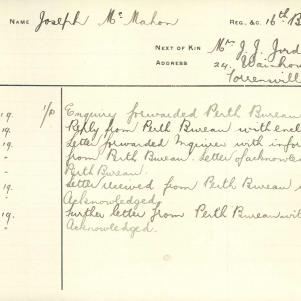 NAME Joseph Mc Mahon REG. &C. 16th B
NEXT OF KIN Mrs J. J. Jord
ADDRESS 24.
Torrensvill
19. 1/P Enquiry forwarded Perth Bureau
19. Reply from Perth Bureau with encl
19. Letter forwarded Inquirer with infor
" from Perth Bureau. Letter of acknowle
Perth Bureau.
" Letter received from Perth Bureau
Acknowledged
19. Further letter from Perth Bureau wit
Acknowledged.